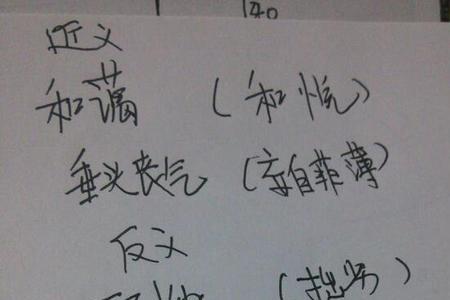 近义
和蔼 (和悦)
垂头丧气 (妄自菲薄)
反义
(拙劣)